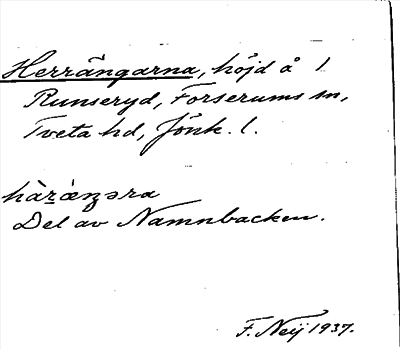 Herrängarna, höjd å 1
Runseryd, Forserums sn,
Tveta hd, Jönk. l.
Del av Namnbacken.
F. Neij 1937.